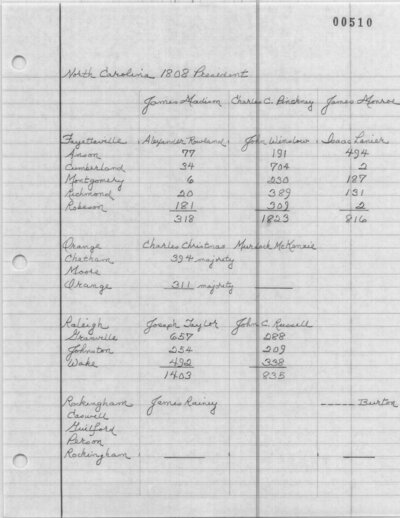 00510
North Carolina 1808 President
James Madison Charles C. Pinckney James Monroe
Fayetteville Alexander Rowland John Winslow Isaac Lanier
Anson 77 191 494
Cumberland 34 704 2
Montgomery 6 230 187
Richmond 20 389 131
Robeson 181 309 2
318 1823 816
Orange Charles Christmas Murdock McKenzie
Chatham 394 majority
Moore
Orange 311 majority
Raleigh Joseph Taylor John C. Russell
Granville 657 288
Johnston 254 209
Wake 492 338
1403 835
Rockingham James Rainey ----- Burton
Caswell
Guilford
Person
Rockingham